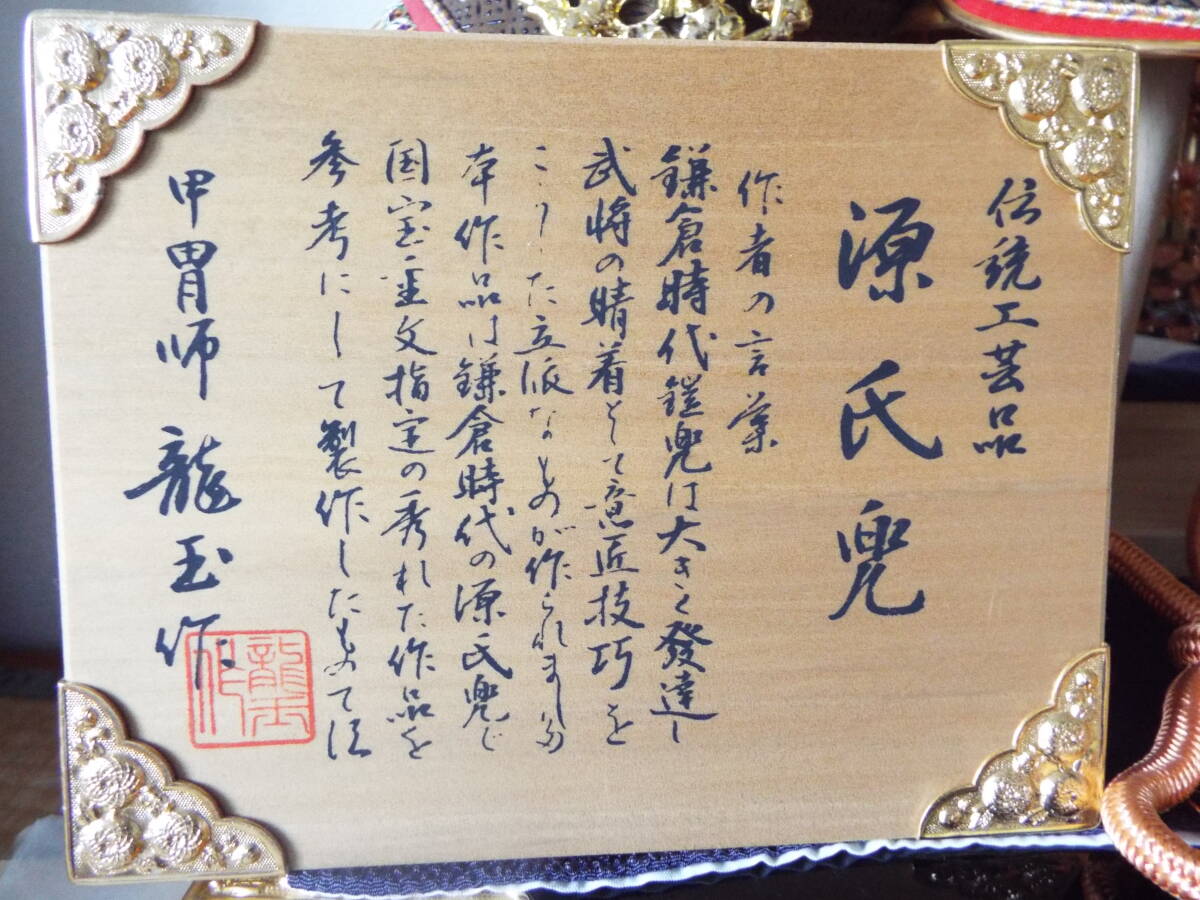 伝統工芸品
源氏兜
作者の言葉
鎌倉時代鎧兜は大きく發達し
武将の晴着として意匠技巧を
こらした立派なものが作られました
本作品は鎌倉時代の源氏兜で
国宝重文指定の秀れた作品を
参考にして製作したもので
甲冑師 龍玉作
龍玉作